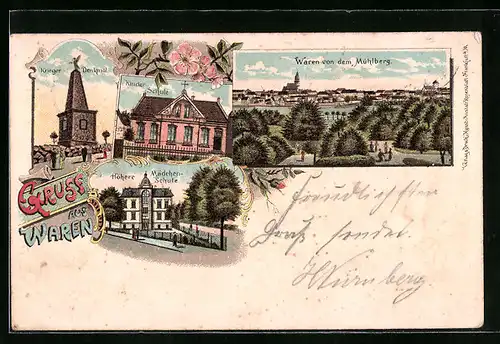 Krieger Denkmal.
Kinder Schule
Waren von dem Mühlberg.
Höhere Mädchen-Schule
GRUSS
aus
WAREN
Freundlichsten
Gruß sendet